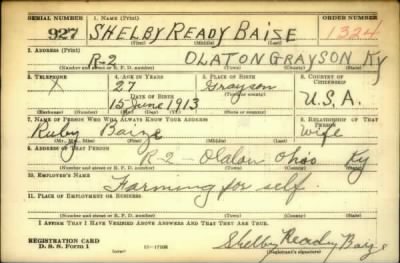 SERIAL NUMBER 1. NAME (Print) ORDER NUMBER
927 SHELBY READY BAIZE 1324
(First) (Middle) (Last)
2. ADDRESS (Print)
R-2 OLATON GRAYSON KY
(Number and street or R. F. D. number) (Town) (County) (State)
3. TELEPHONE 4. AGE IN YEARS 5. PLACE OF BIRTH 6. COUNTRY OF CITIZENSHIP
X 27 Grayson
DATE OF BIRTH (Town or county) U.S.A.
15 June 1913 Ky
(Exchange) (Number) (Mo.) (Day) (Yr.) (State or country)
7. NAME OF PERSON WHO WILL ALWAYS KNOW YOUR ADDRESS 8. RELATIONSHIP OF THAT PERSON
Ruby Baize wife
(Mr., Mrs., Miss) (First) (Middle) (Last)
9. ADDRESS OF THAT PERSON
R-2 - Olaton Ohio Ky
(Number and street or R. F. D. number) (Town) (County) (State)
10. EMPLOYER'S NAME
Farming for self.
11. PLACE OF EMPLOYMENT OR BUSINESS
(Number and street or R. F. D. number) (Town) (County) (State)
I AFFIRM THAT I HAVE VERIFIED ABOVE ANSWERS AND THAT THEY ARE TRUE.
REGISTRATION CARD
D. S. S. Form 1 Shelby Ready Baize
(Registrant's signature)